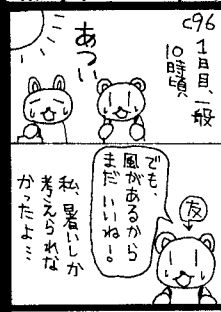 c96
1日目、一般
10時頃
あつい
でも、
風があるから
まだいいね!。
友
私、暑いしか
考えられな
かったよ…